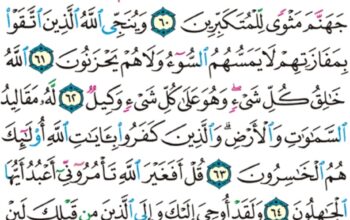 جَهَنَّمَ مَثْوًى لِّلْمُتَكَبِّرِينَ ٦٠ وَيُنَجِّى ٱللَّهُ ٱلَّذِينَ ٱتَّقَوْا۟
بِمَفَازَتِهِمْ لَا يَمَسُّهُمُ ٱلسُّوٓءُ وَلَا هُمْ يَحْزَنُونَ ٦١ ٱللَّهُ
خَـٰلِقُ كُلِّ شَىْءٍ ۖ وَهُوَ عَلَىٰ كُلِّ شَىْءٍ وَكِيلٌ ٦٢ لَّهُۥ مَقَالِيدُ
ٱلسَّمَـٰوَٰتِ وَٱلْأَرْضِ ۗ وَٱلَّذِينَ كَفَرُوا۟ بِـَٔايَـٰتِ ٱللَّهِ أُو۟لَـٰٓئِكَ
هُمُ ٱلْخَـٰسِرُونَ ٦٣ قُلْ أَفَغَيْرَ ٱللَّهِ تَأْمُرُوٓنِّىٓ أَعْبُدُ أَيُّهَا
ٱلْجَـٰهِلُونَ ٦٤ وَلَقَدْ أُوحِىَ إِلَيْكَ وَإِلَى ٱلَّذِينَ مِن قَبْلِكَ لَئِنْ